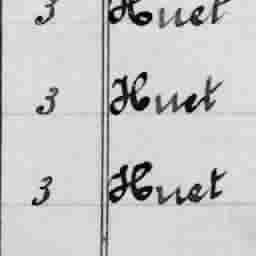 3 Huet
3 Huet
3 Huet